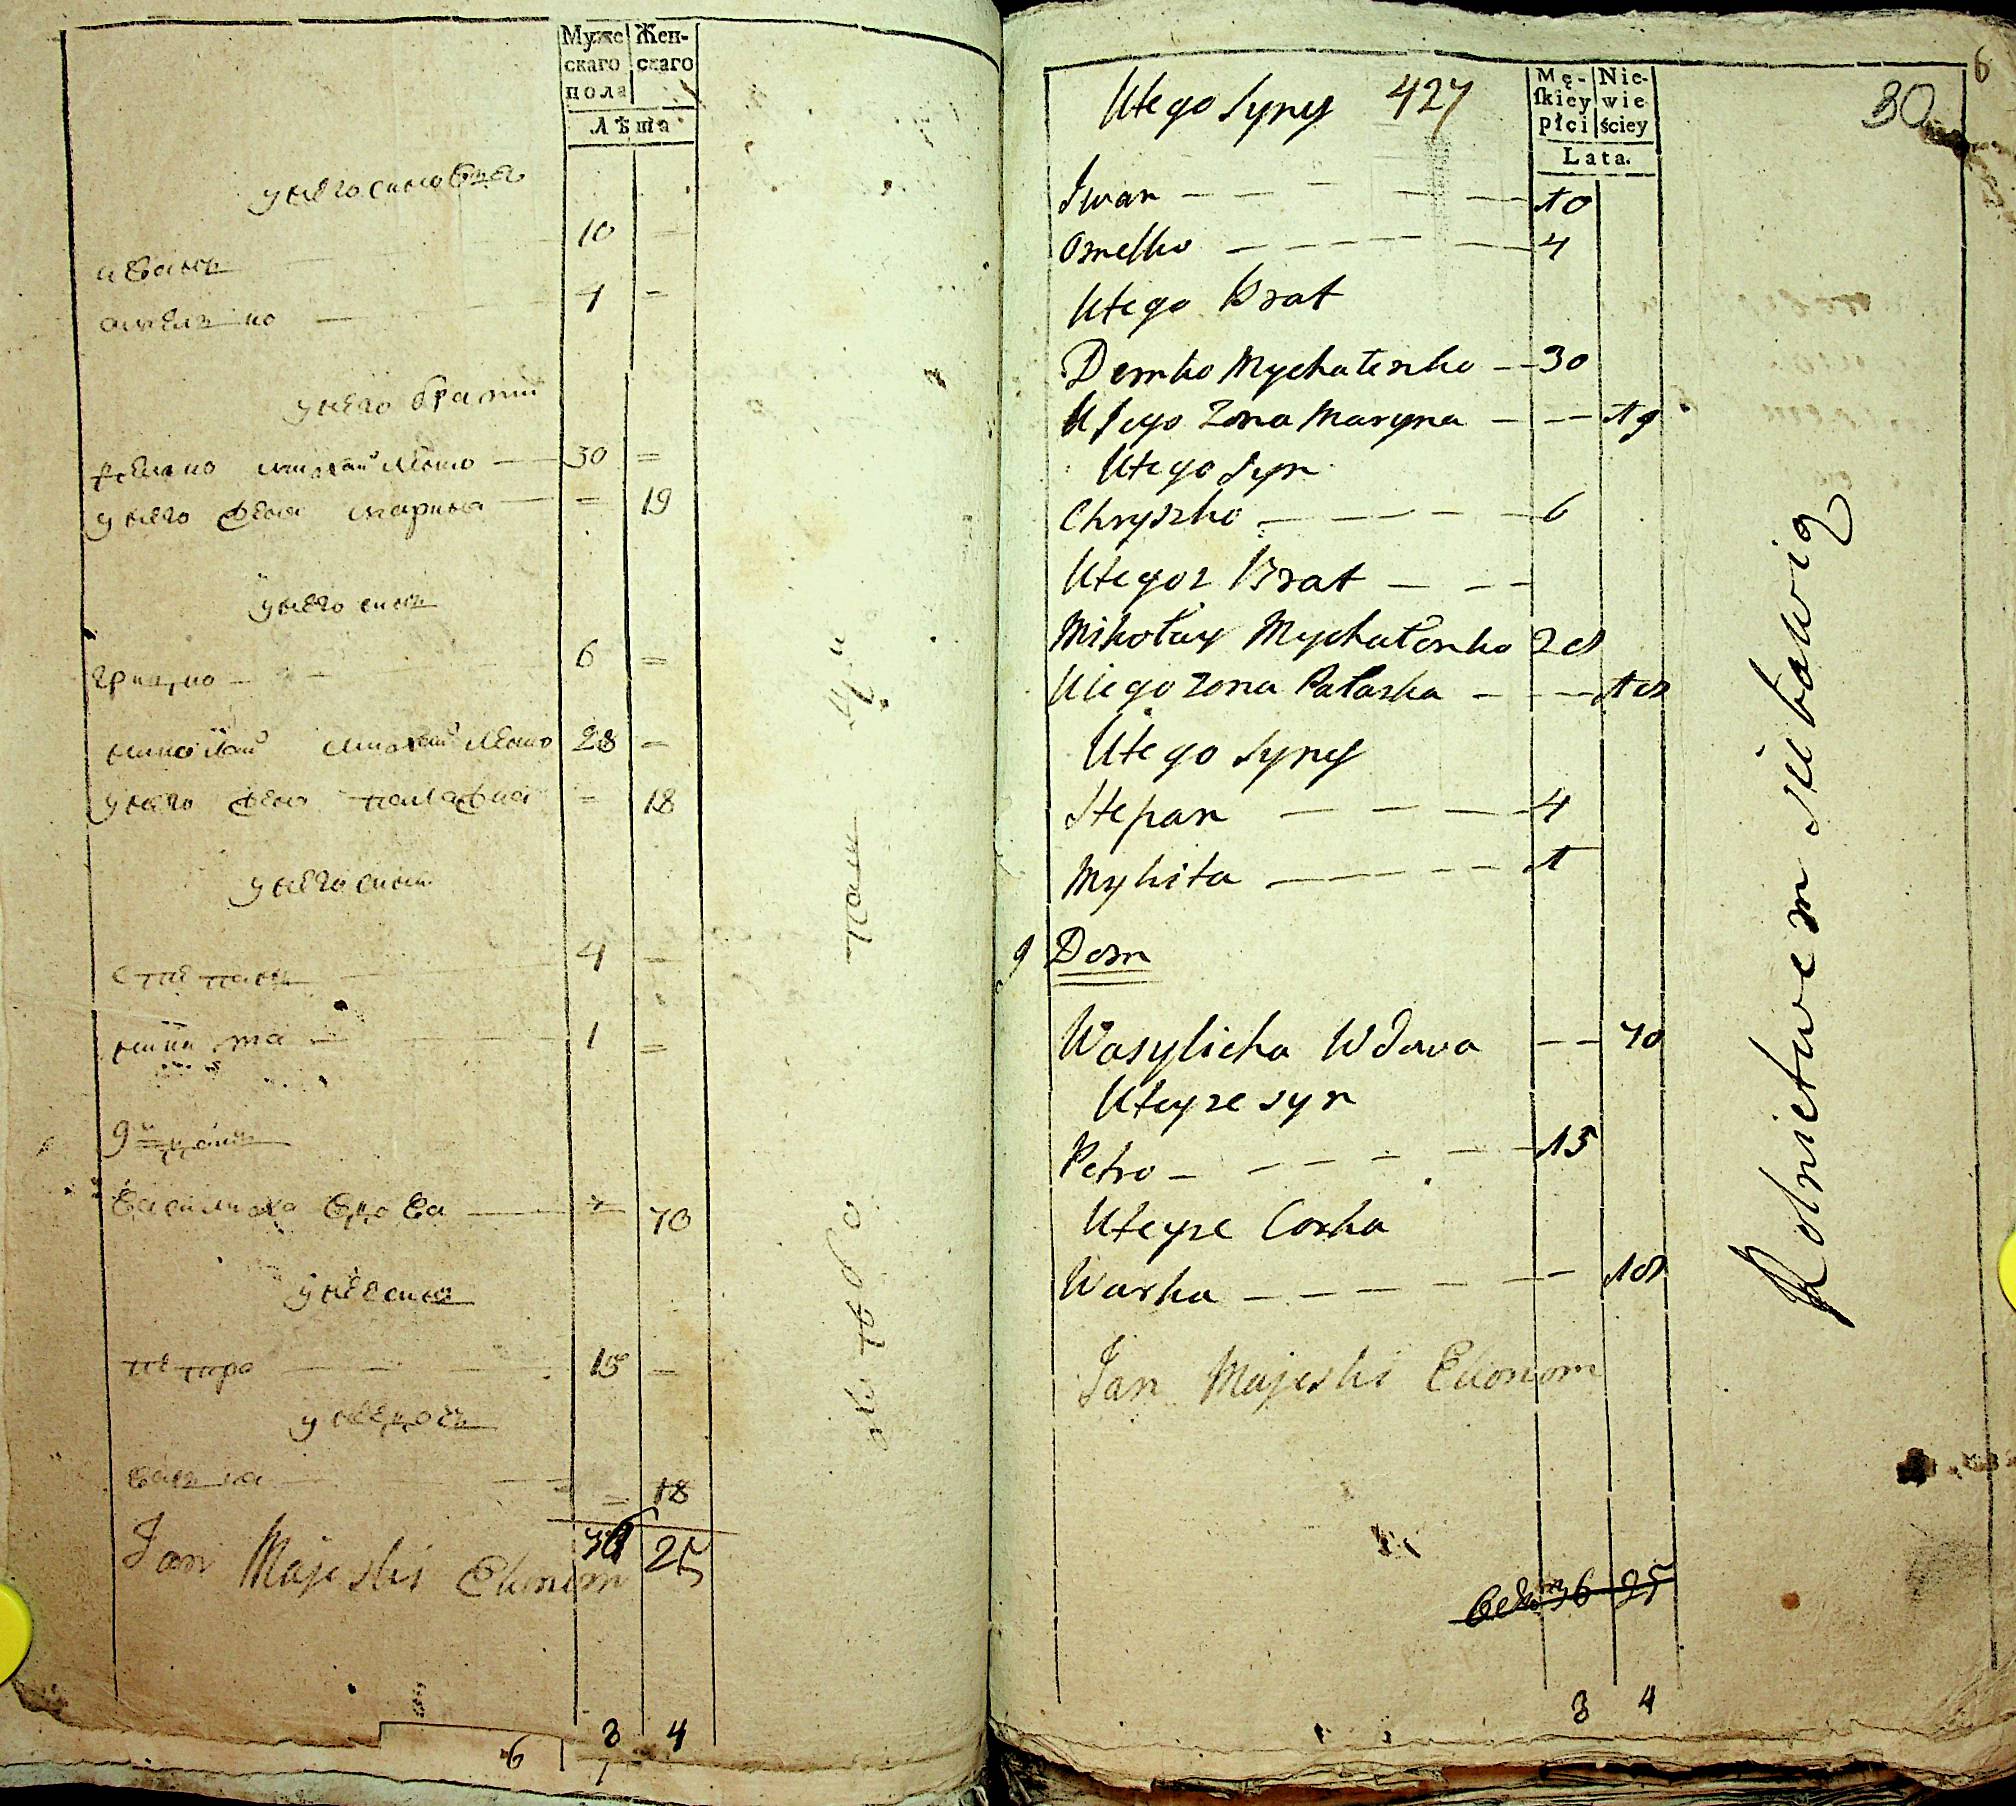 Муже
скаго
пола
Жен-
скаго
Лѣта
у него синовя
иванъ 10 =
омелько 4 =
у него брати
демко михайленко 30 =
у него жена марина = 19
у него синъ
грицко 6 =
николай михайленко 28 =
у него жена палажка = 18
у него сини
степанъ 4 =
микита 1 =
9 й домъ
василиха вдова = 70
у нее синъ
петро 15 =
у нее дочь
варка = 18
36 25
Jan Majeski Ekonom
3 4
6
Utego Syny 427
Mę-
skiey
płci
Nie-
wie
ściey
Lata.
30
6
Iwan — — — — — 10
Omelko — — — — — 4
Utego Brat
Demko Mychałenko — — 30
Utego Zona Maryna — — — 19
Utego Syn
Chryszko — — — — 6
Utegoz Brat — — —
Mikołay Mychałenko 28
Utego zona Pałaszka — — — 18
Utego Syny
Stepan — — — — 4
Mykita — — — — 1
9 Dom
Wasylicha Wdowa — — 70
Uteyze syn
Petro — — — — — 15
Uteyze Corka
Warka — — — — — — 18
Jan Majeski Ekonom
36 25
3 4
Rolnictwem się bawią